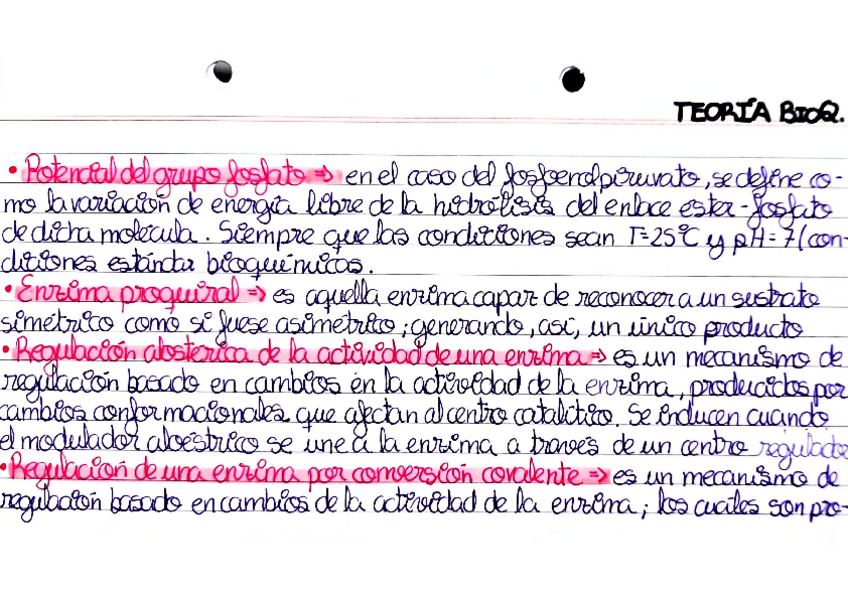 TEORÍA BIOQ.
• Potencial del grupo fosfato => en el caso del fosfoenolpiruvato, se define co-
mo la variación de energía libre de la hidrólisis del enlace ester-fosfato
de dicha molécula. Siempre que las condiciones sean T=25ºC y pH=7 (con-
diciones estándar bioquímicas.
• Enzima proquiral => es aquella enzima capaz de reconocer a un sustrato
simétrico como si fuese asimétrico; generando, así, un único producto
• Regulación alosterica de la actividad de una enzima => es un mecanismo de
regulación basado en cambios en la actividad de la enzima, producidos por
cambios conformacionales que afectan al centro catalítico. Se inducen cuando
el modulador aloestrico se une a la enzima a través de un centro regulador
• Regulacion de una enzima por conversión covalente => es un mecanismo de
regulación basado en cambios de la actividad de la enzima; los cuales son pro-